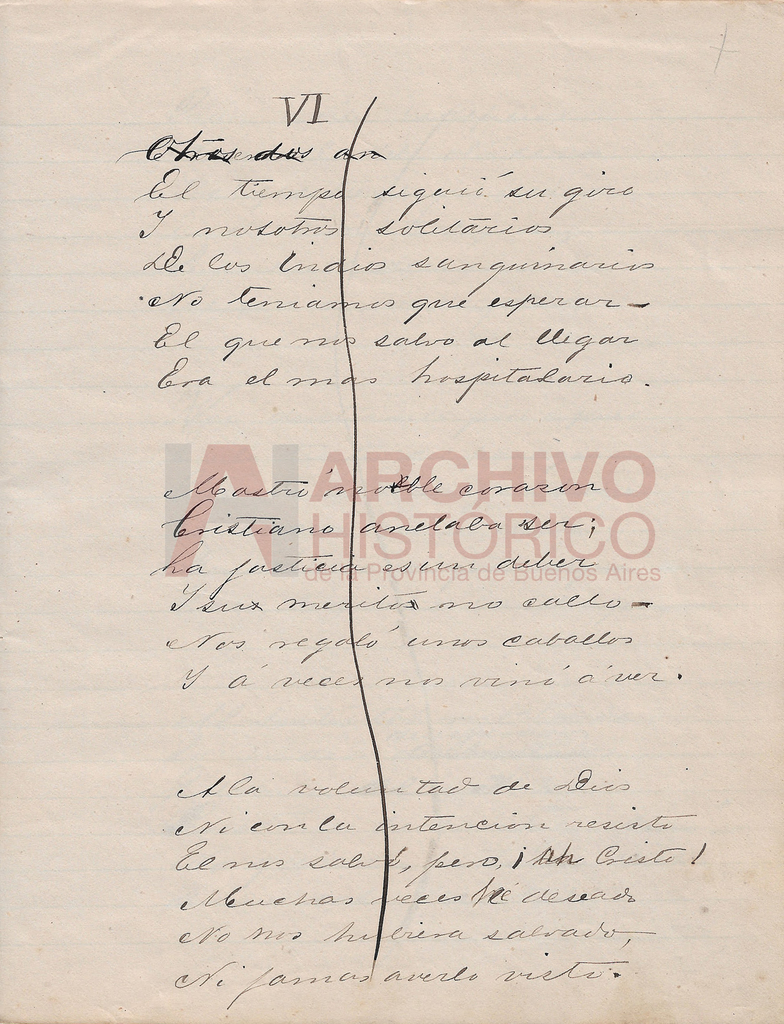 VI
Otros dos an
El tiempo siguió su giro
I nosotros solitarios
De los Indios sanguinarios
No teniamos que esperar—
El que nos salvo al llegar
Era el mas hospitalario.
Mostró noble corazon
Cristiano anelaba ser;
La justicia es un deber
I sus meritos no callo—
Nos regaló unos caballos
I á veces nos vinó á ver.
A la voluntad de Dios
Ni con la intencion resisto
El nos salvó, pero, ¡Ah Cristo!
Muchas veces hé deseado
No nos hubiera salvado,
Ni jamas averlo visto.
ARCHIVO
HISTÓRICO
de la Provincia de Buenos Aires